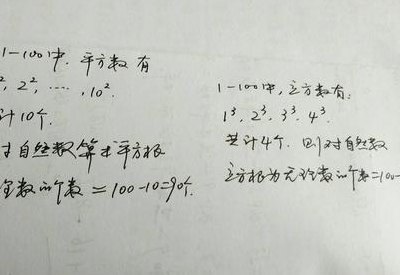 1-100中, 平方数有
², 2², ……, 10².
计10个.
自然数算术平方根
数的个数=100-10=90个.
1-100中, 立方数有:
1³, 2³, 3³, 4³.
共计4个. 则对自然数
立方根为无理数的个数=100-